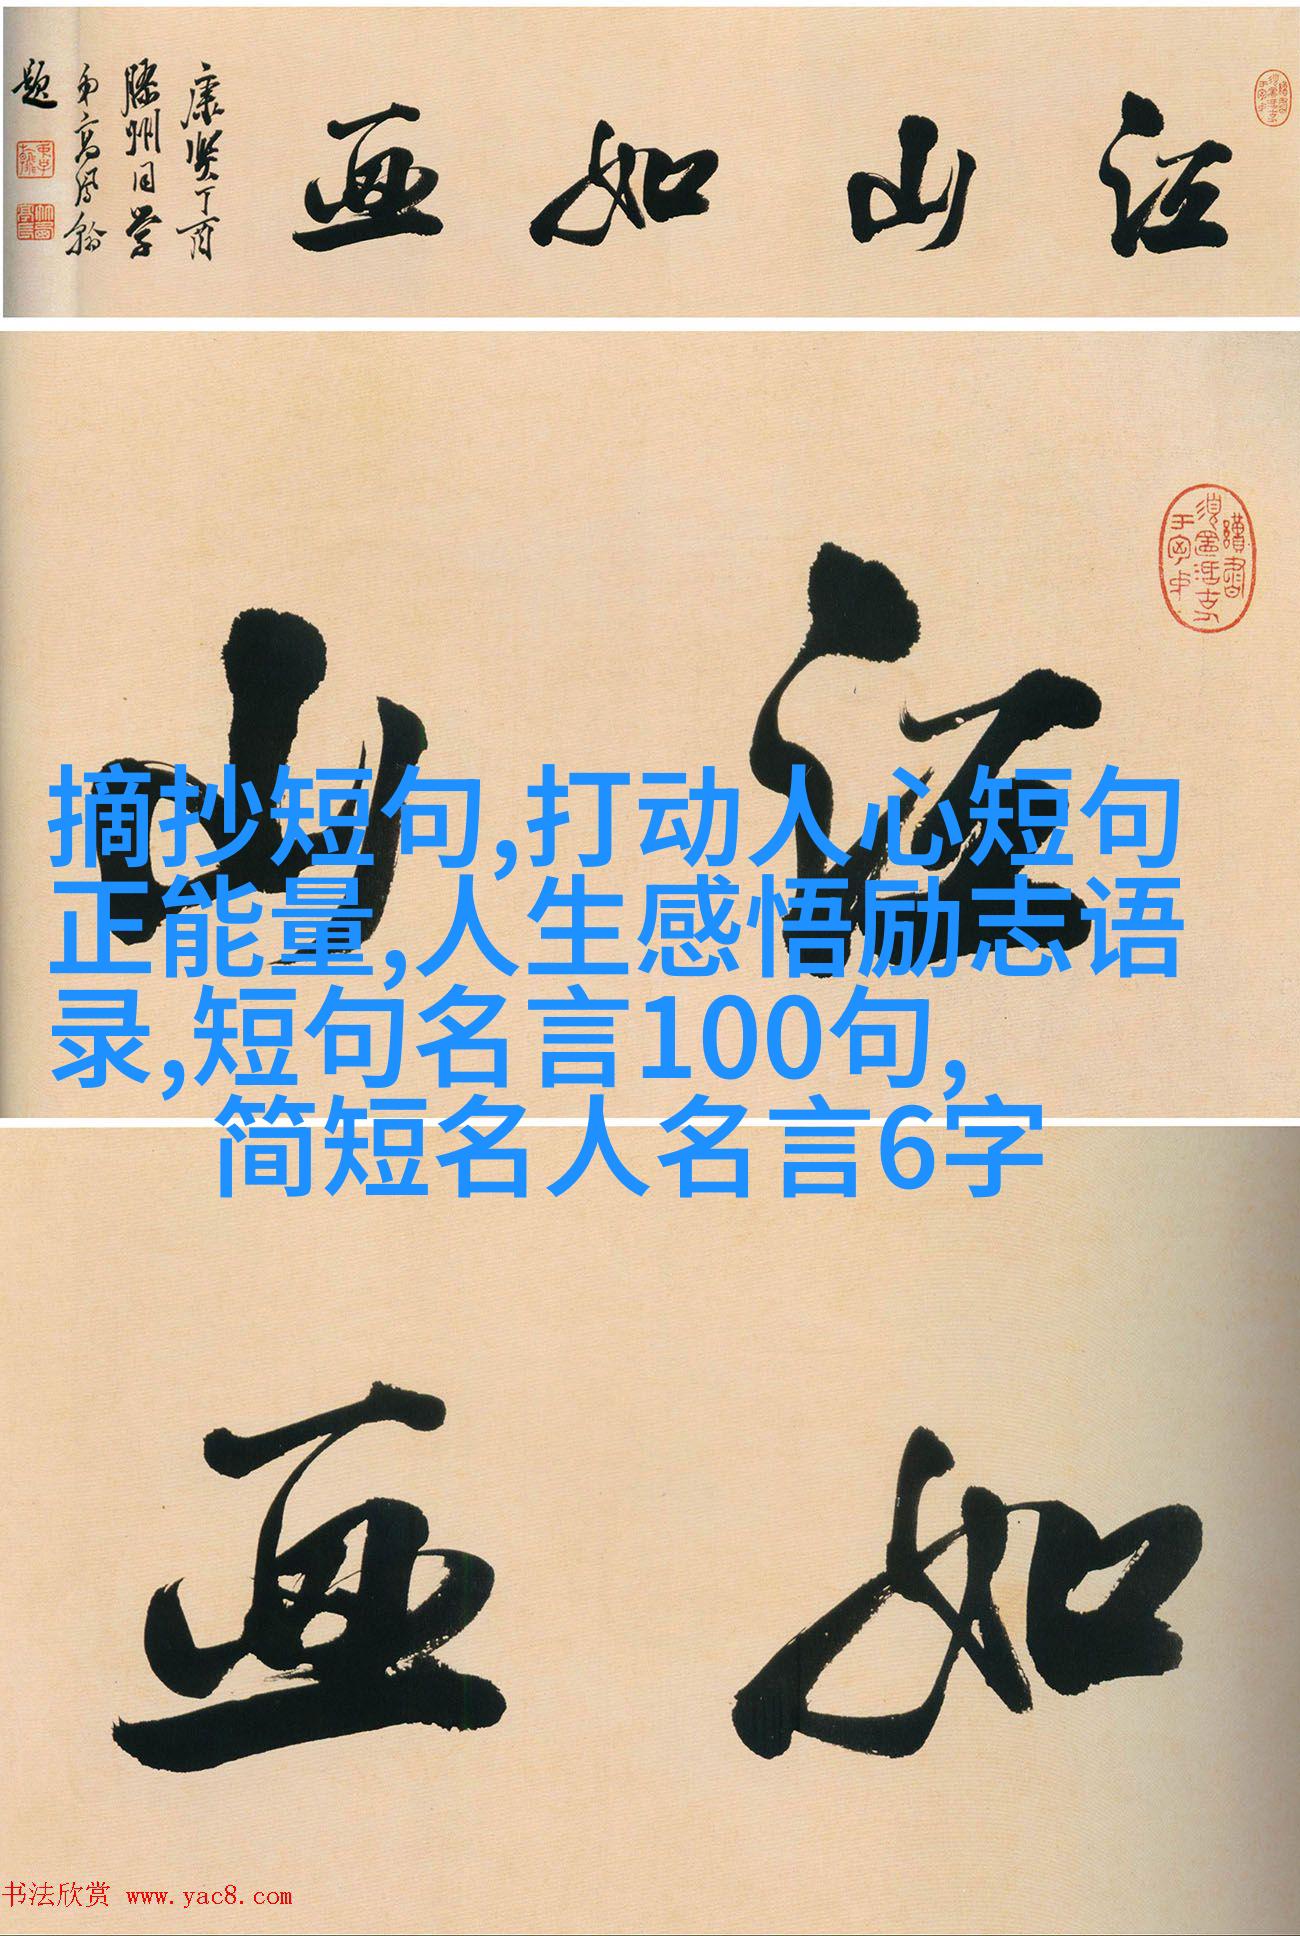 江山如画
康贤丁酉
滕州同学
弟高凤翰
题
江山
摘抄短句,打动人心短句
正能量,人生感悟励志语
录,短句名言100句,
简短名人名言6字
如画
书法欣赏 www.yac8.com